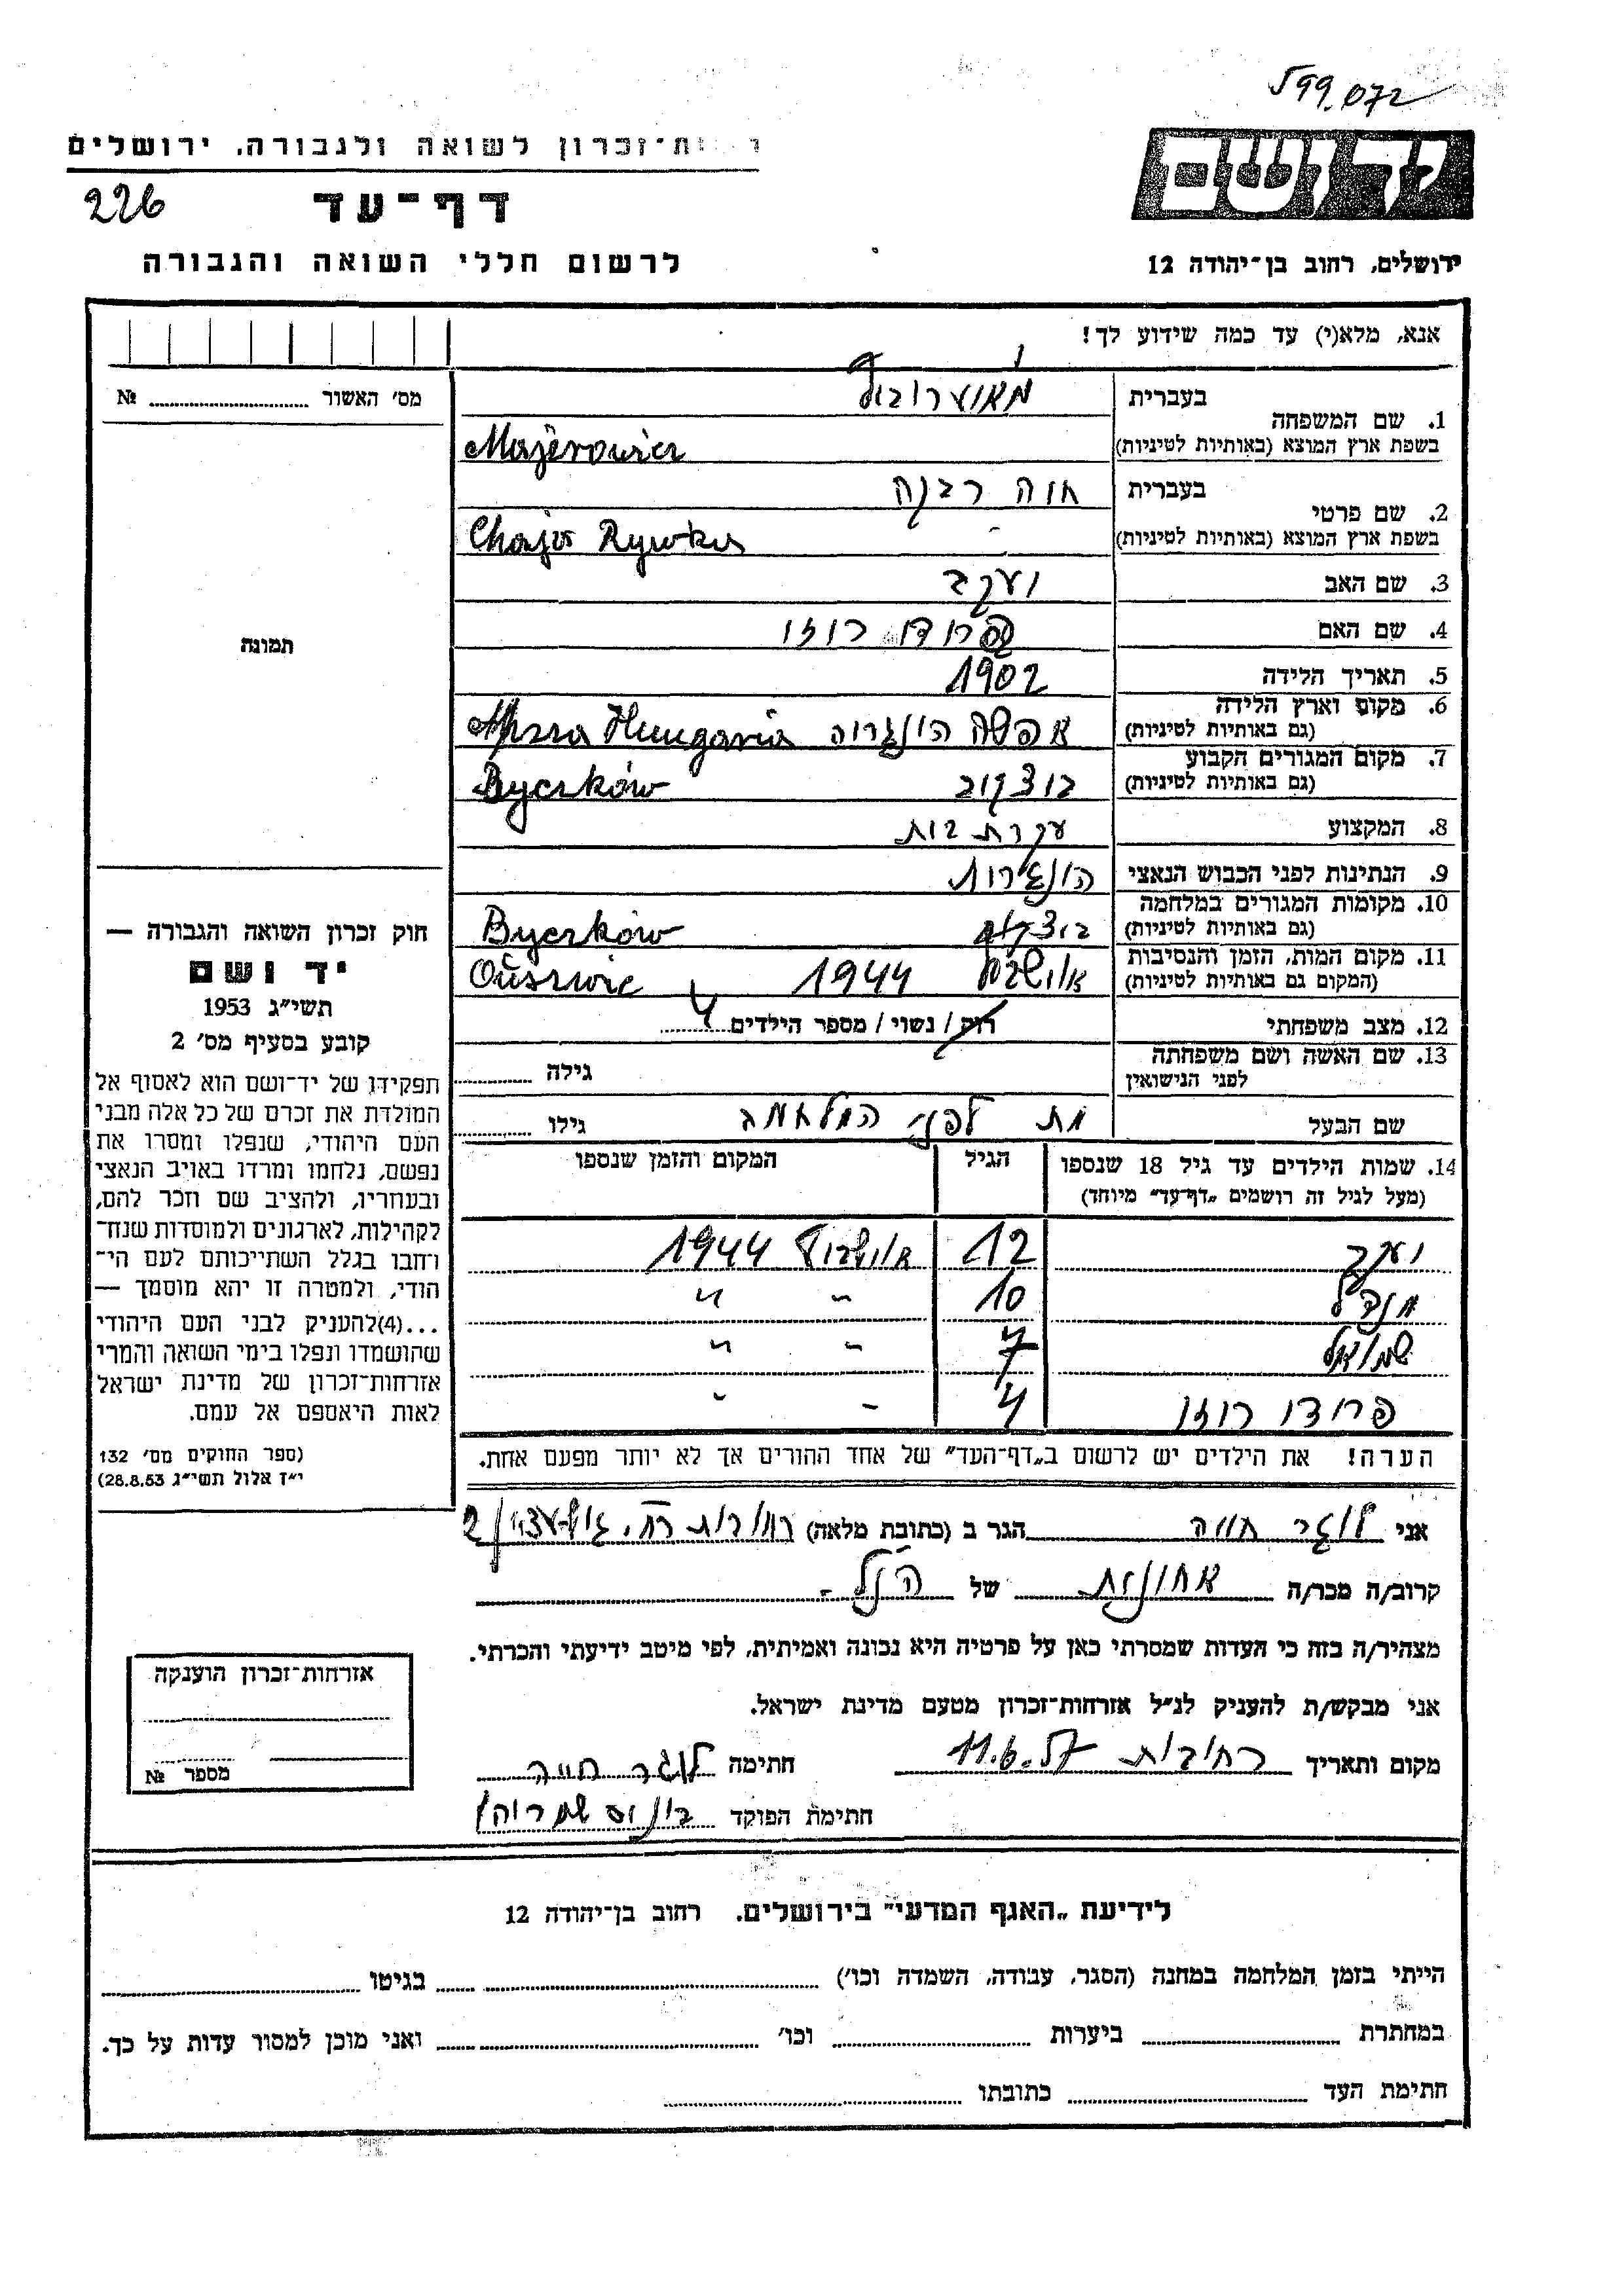 599.072
יד ושם
ירושלים, רחוב בן־יהודה 12
ת־זכרון לשואה ולגבורה, ירושלים
226
דף־עד
לרשום חללי השואה והגבורה
אנא, מלא(י) עד כמה שידוע לך!
מס' האשור ........ №
תמונה
1. שם המשפחה
בעברית
בשפת ארץ המוצא (באותיות לטיניות) Majerowicz
2. שם פרטי
בעברית חוה רבקה
בשפת ארץ המוצא (באותיות לטיניות) Chaja Rywka
3. שם האב יעקב
4. שם האם פרידי רוזי
5. תאריך הלידה 1902
6. מקום וארץ הלידה
(גם באותיות לטיניות) אפשה הונגריה Apsza Hungaria
7. מקום המגורים הקבוע
(גם באותיות לטיניות) ביצקוב Byczków
8. המקצוע עקרת בית
9. הנתינות לפני הכבוש הנאצי הונגרית
10. מקומות המגורים במלחמה
(גם באותיות לטיניות) ביצקוב Byczków
11. מקום המות, הזמן והנסיבות
(המקום גם באותיות לטיניות) 1944
12. מצב משפחתי רוק / נשוי / מספר הילדים 4
13. שם האשה ושם משפחתה
לפני הנישואין גילה
שם הבעל מת לפני המלחמה גילו
14. שמות הילדים עד גיל 18 שנספו
(מעל לגיל זה רושמים „דף־עד" מיוחד)
הגיל
המקום והזמן שנספו
יעקב 12 1944
10 " "
שמואל 7 " "
פרידי רוזי 4 " "
הערה! את הילדים יש לרשום ב„דף־העד" של אחד ההורים אך לא יותר מפעם אחת.
חוק זכרון השואה והגבורה —
יד ושם
תשי"ג 1953
קובע בסעיף מס' 2
תפקידו של יד־ושם הוא לאסוף אל
המולדת את זכרם של כל אלה מבני
העם היהודי, שנפלו ומסרו את
נפשם, נלחמו ומרדו באויב הנאצי
ובעוזריו, ולהציב שם וזכר להם,
לקהילות, לארגונים ולמוסדות שנח־
רבו בגלל השתייכותם לעם הי־
הודי, ולמטרה זו יהא מוסמך —
...(4) להעניק לבני העם היהודי
שהושמדו ונפלו בימי השואה והמרי
אזרחות־זכרון של מדינת ישראל
לאות היאספם אל עמם.
(ספר החוקים מס' 132
י"ז אלול תשי"ג 28.8.53)
אני לוגר חייה הגר ב (כתובת מלאה) רחובות רח.
קרוב/ה מכר/ה של הנ"ל
מצהיר/ה בזה כי העדות שמסרתי כאן על פרטיה היא נכונה ואמיתית, לפי מיטב ידיעתי והכרתי.
אני מבקש/ת להעניק לנ"ל אזרחות־זכרון מטעם מדינת ישראל.
מקום ותאריך רחובות 11.6.57 חתימה לוגר חייה
חתימת הפוקד
אזרחות־זכרון הוענקה
מספר №
לידיעת „האגף המדעי" בירושלים. רחוב בן־יהודה 12
הייתי בזמן המלחמה במחנה (הסגר, עבודה, השמדה וכו') ........ בגיטו ........
במחתרת ........ ביערות ........ וכו' ........ ואני מוכן למסור עדות על כך.
חתימת העד ........ כתובתו ........